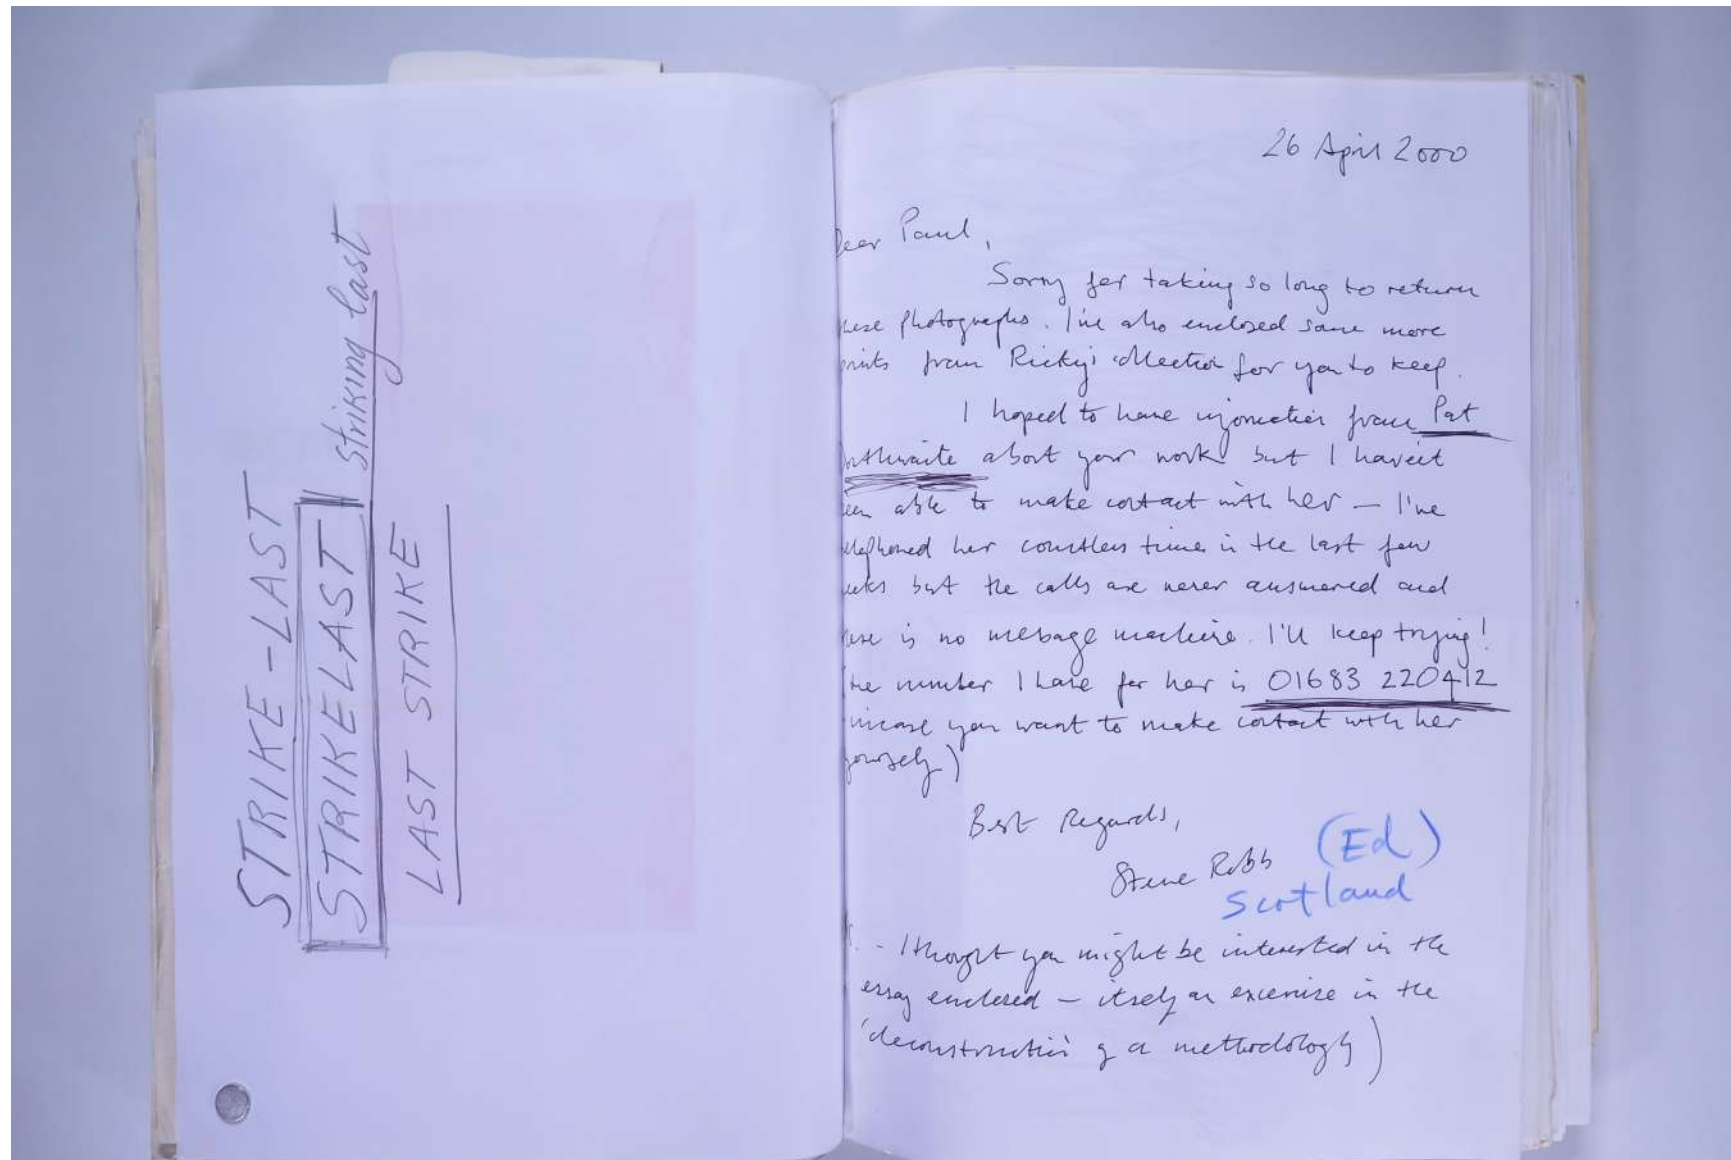 STRIKE-LAST
STRIKELAST
striking last
LAST STRIKE
26 April 2000
Dear Paul,
Sorry for taking so long to return
these photographs. I've also enclosed some more
prints from Ricky's collection for you to keep.
I hoped to have information from Pat
outhwaite about your work but I haven't
been able to make contact with her – I've
telephoned her countless times in the last few
weeks but the calls are never answered and
there is no message machine. I'll keep trying!
the number I have for her is 01683 220412
incase you want to make contact with her
yourself)
Best Regards,
Steve Robb
(Ed)
Scotland
- I thought you might be interested in the
essay enclosed – itself an excercise in the
'deconstruction of a methodology)